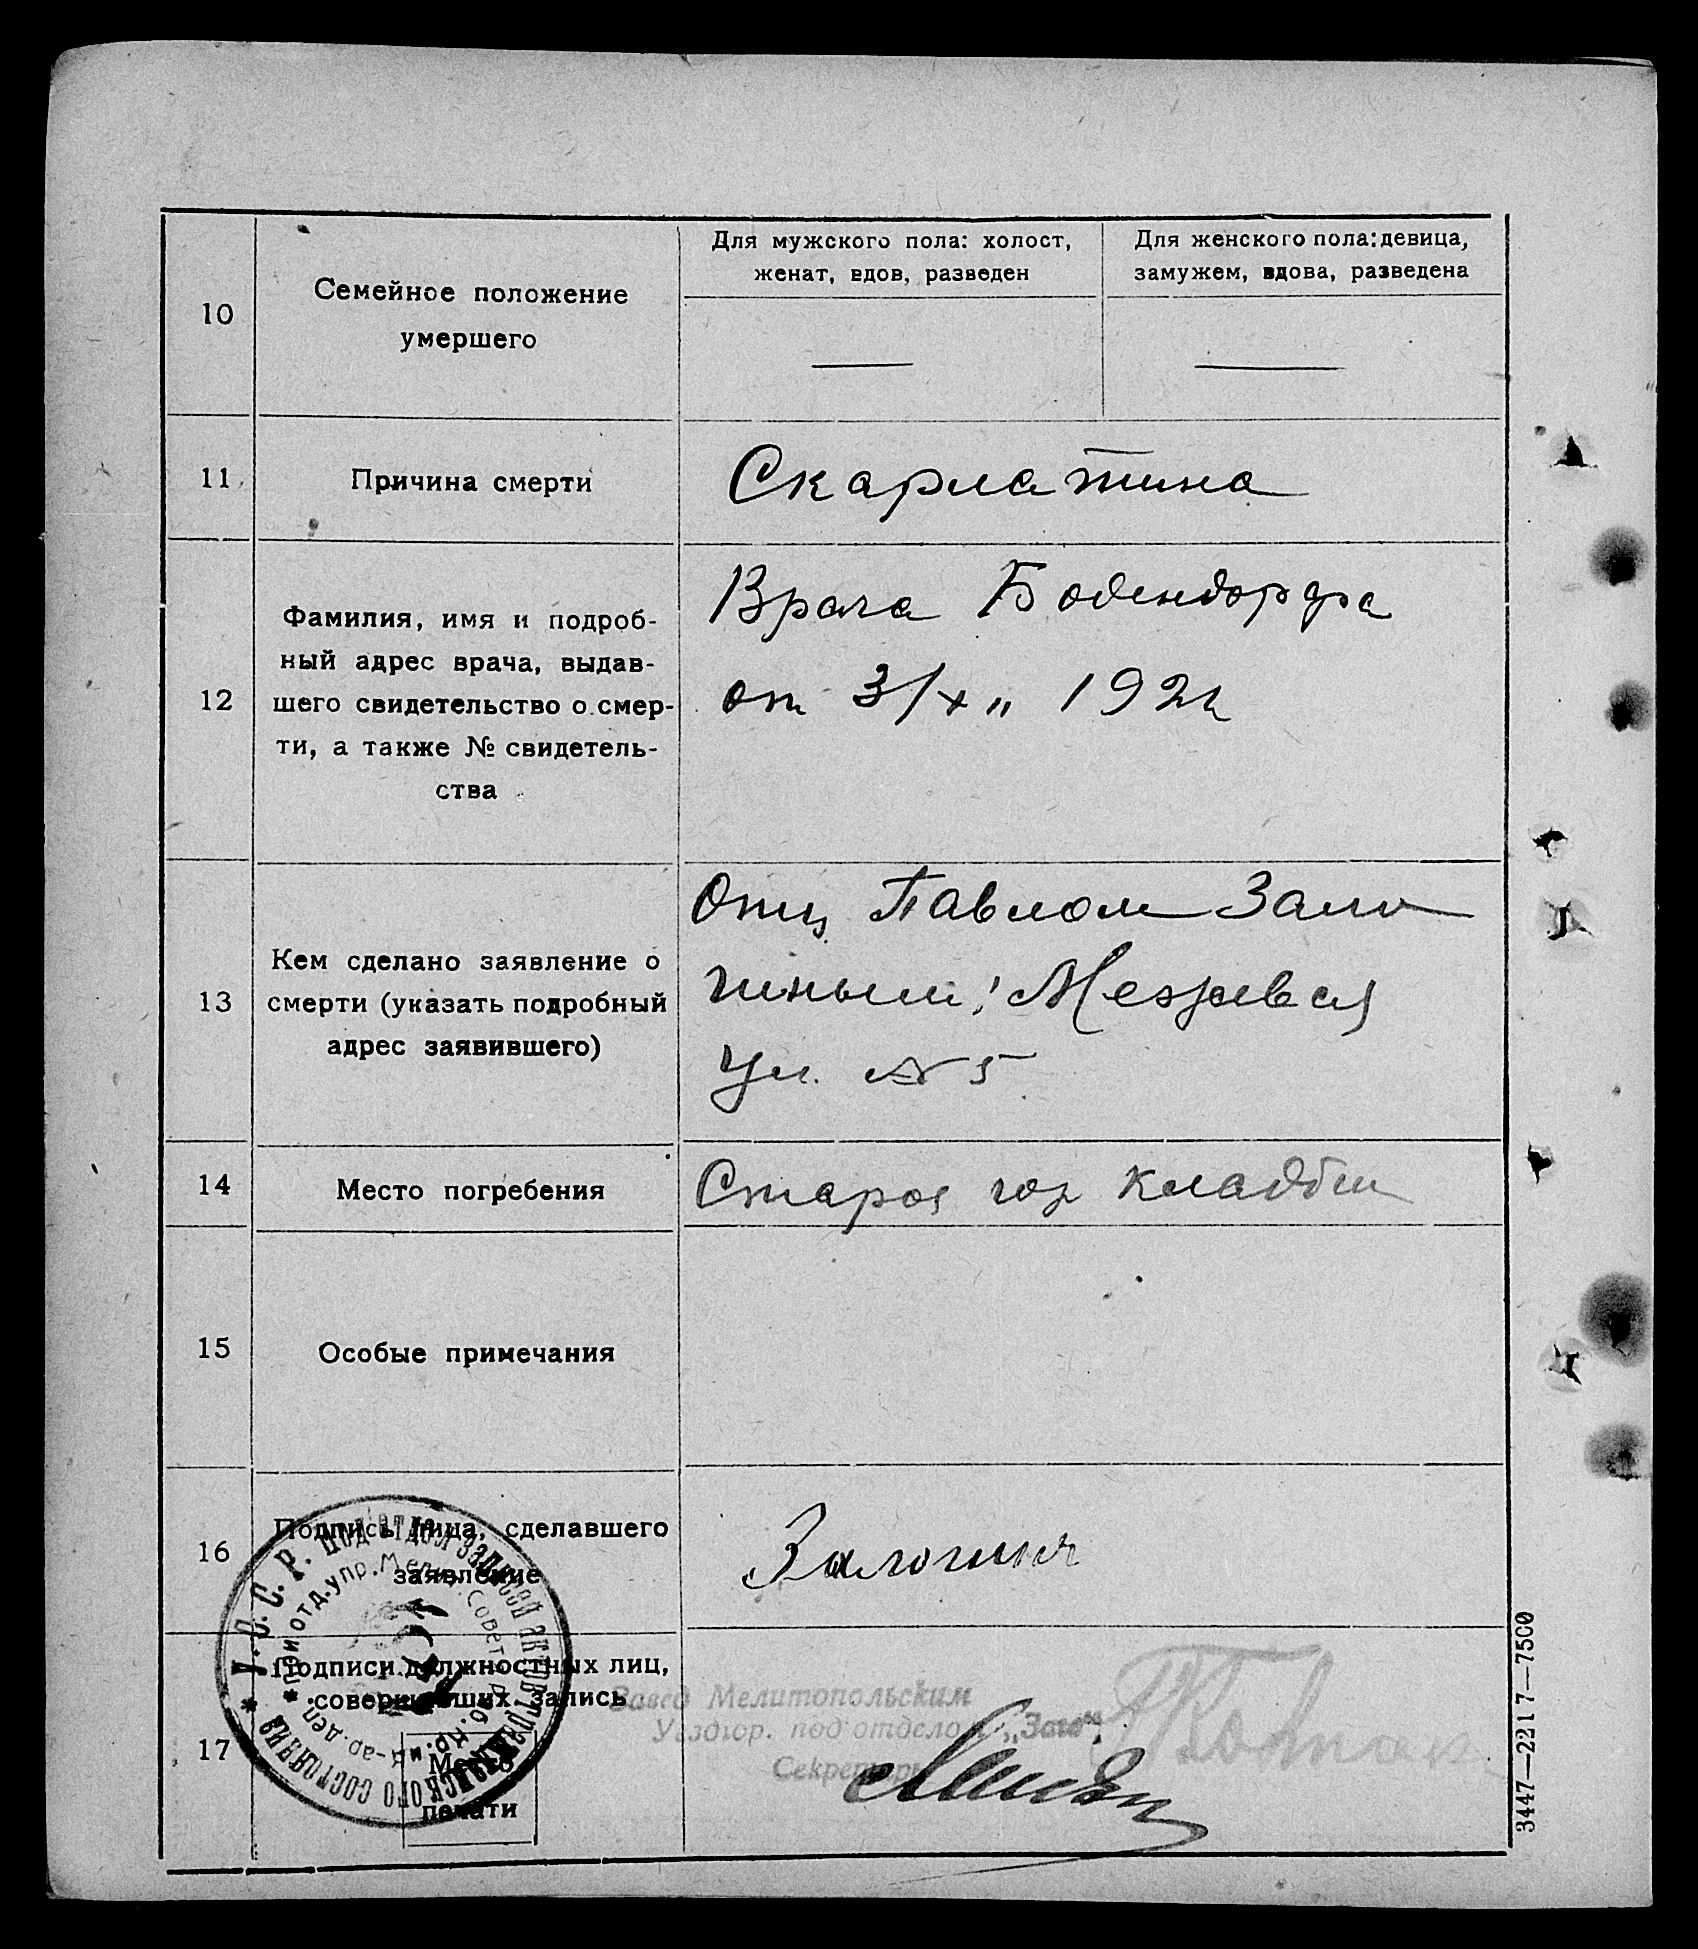 10
Семейное положение
умершего
Для мужского пола: холост,
женат, вдов, разведен
Для женского пола: девица,
замужем, вдова, разведена
11
Причина смерти
Скарлатина
12
Фамилия, имя и подроб-
ный адрес врача, выдав-
шего свидетельство о смер-
ти, а также № свидетель-
ства
Врача Бодендорфа
от 3/X 192
13
Кем сделано заявление о
смерти (указать подробный
адрес заявившего)
Отц Павлом Зало
гиным; Межевая
ул. № 5
14
Место погребения
Старое гор кладбищ
15
Особые примечания
16
Подпись лица, сделавшего
заявление
Залогин
17
Подписи должностных лиц,
совершивших запись
Место
печати
У.С.С.Р. Подотдел записей актов гражданского состояния
при отд. упр. Мелит. Совета раб. кр. и кр-ар. деп.
Завед Мелитопольским
Уездгор. подотделом „Загс“
Секретарь
3447—2217—7500